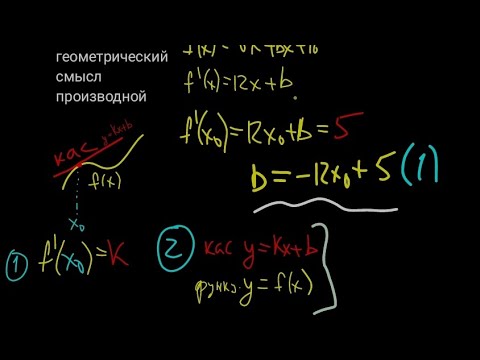 геометрический
смысл
производной
f(x) = 6x²+bx+10
f'(x)=12x+b.
f'(x₀)=12x₀+b=5
b=-12x₀+5 (1)
кас y=kx+b
f(x)
x₀
1 f'(x₀)=K
2 кас y=kx+b
функц. y=f(x)